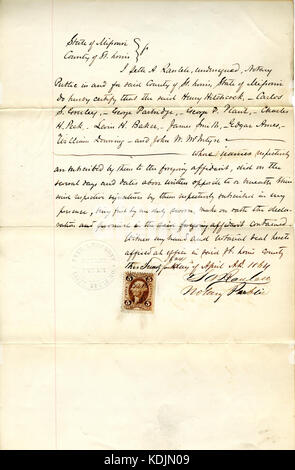 State of Missouri
County of St. Louis
I Seth A. Ranlett, undersigned, Notary
Public in and for said County of St. Louis, State of Missouri
Do hereby certify that the said Henry Hitchcock, – Carlos
S. Greeley, – George Partridge, – George P. Plant, – Charles
H. Peck, – Levin H. Baker, – James Smith, – Edgar Ames, –
William Downing – and John W. McIntyre –
whose names respectively
are subscribed by them to the forgoing affidavit, did on the
several days and dates above written opposite to
respective signatures by them respectively subscribed in my
presence, they first by me duly sworn, make on oath the decla-
ration and contained
Witness my hand and notarial seal hereto
affixed at office in said St. Louis County
this day of April A.D. 1864
S A Ranlett
Notary Public
5 5
alamy
alamy stock photo
KDJN09